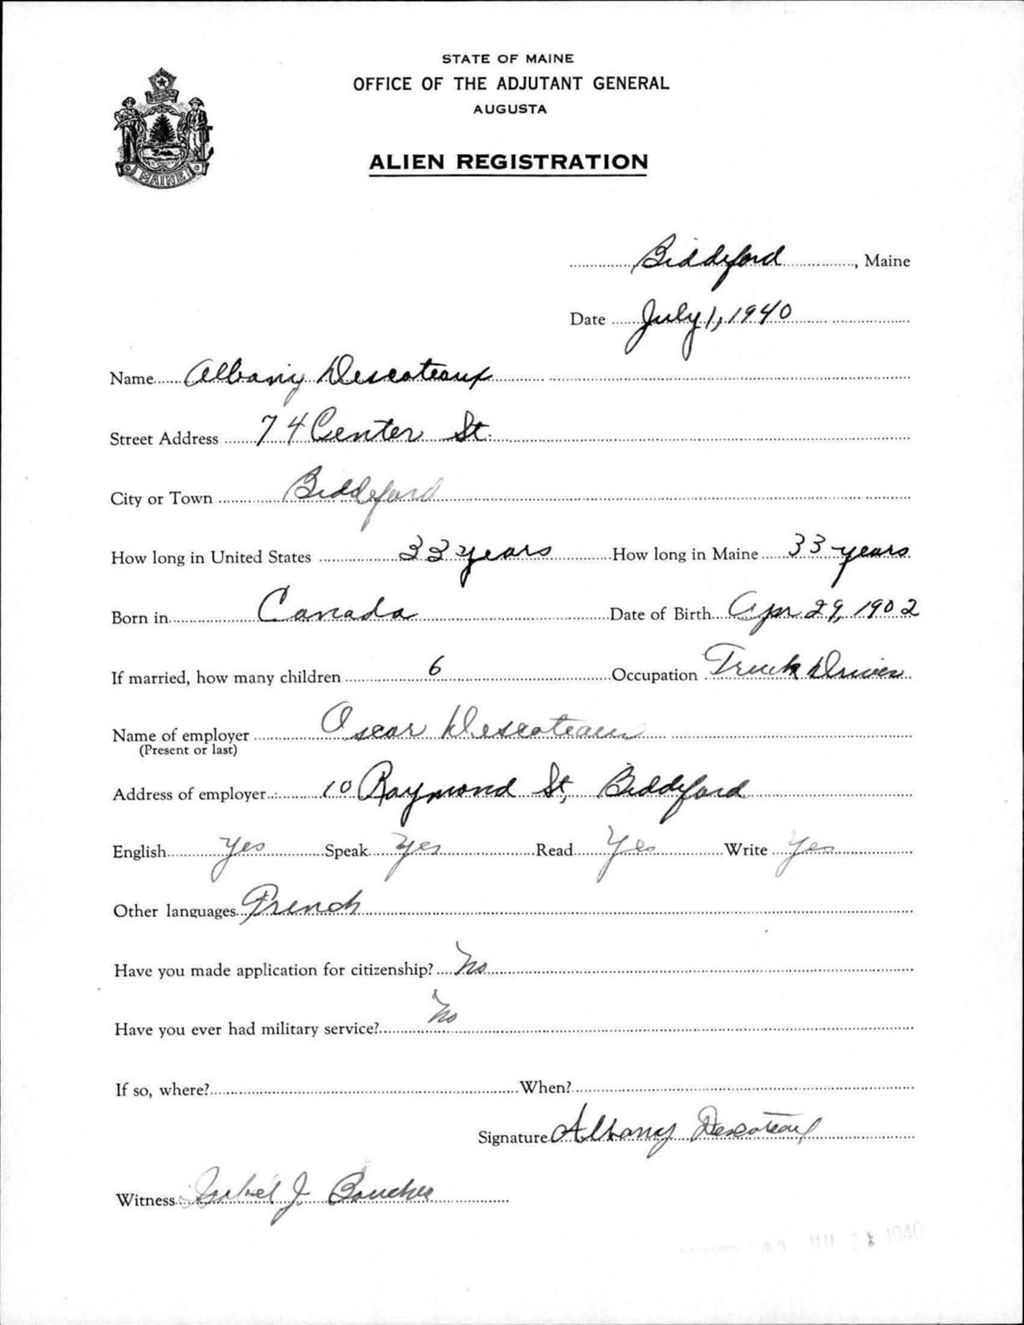 STATE OF MAINE
OFFICE OF THE ADJUTANT GENERAL
AUGUSTA
ALIEN REGISTRATION
MAINE
Biddeford, Maine
Date July 1, 1940
Name Albany Descoteaux
Street Address 74 Center St.
City or Town Biddeford
How long in United States 33 years How long in Maine 33 years
Born in Canada Date of Birth Apr 29, 1902
If married, how many children 6 Occupation Truck Driver
Name of employer Oscar Descoteaux
(Present or last)
Address of employer 10 Raymond St, Biddeford
English Yes Speak Yes Read Yes Write Yes
Other languages French
Have you made application for citizenship? No
Have you ever had military service? No
If so, where? When?
Signature Albany Descoteaux
Witness Isabel J. Boucher
1940